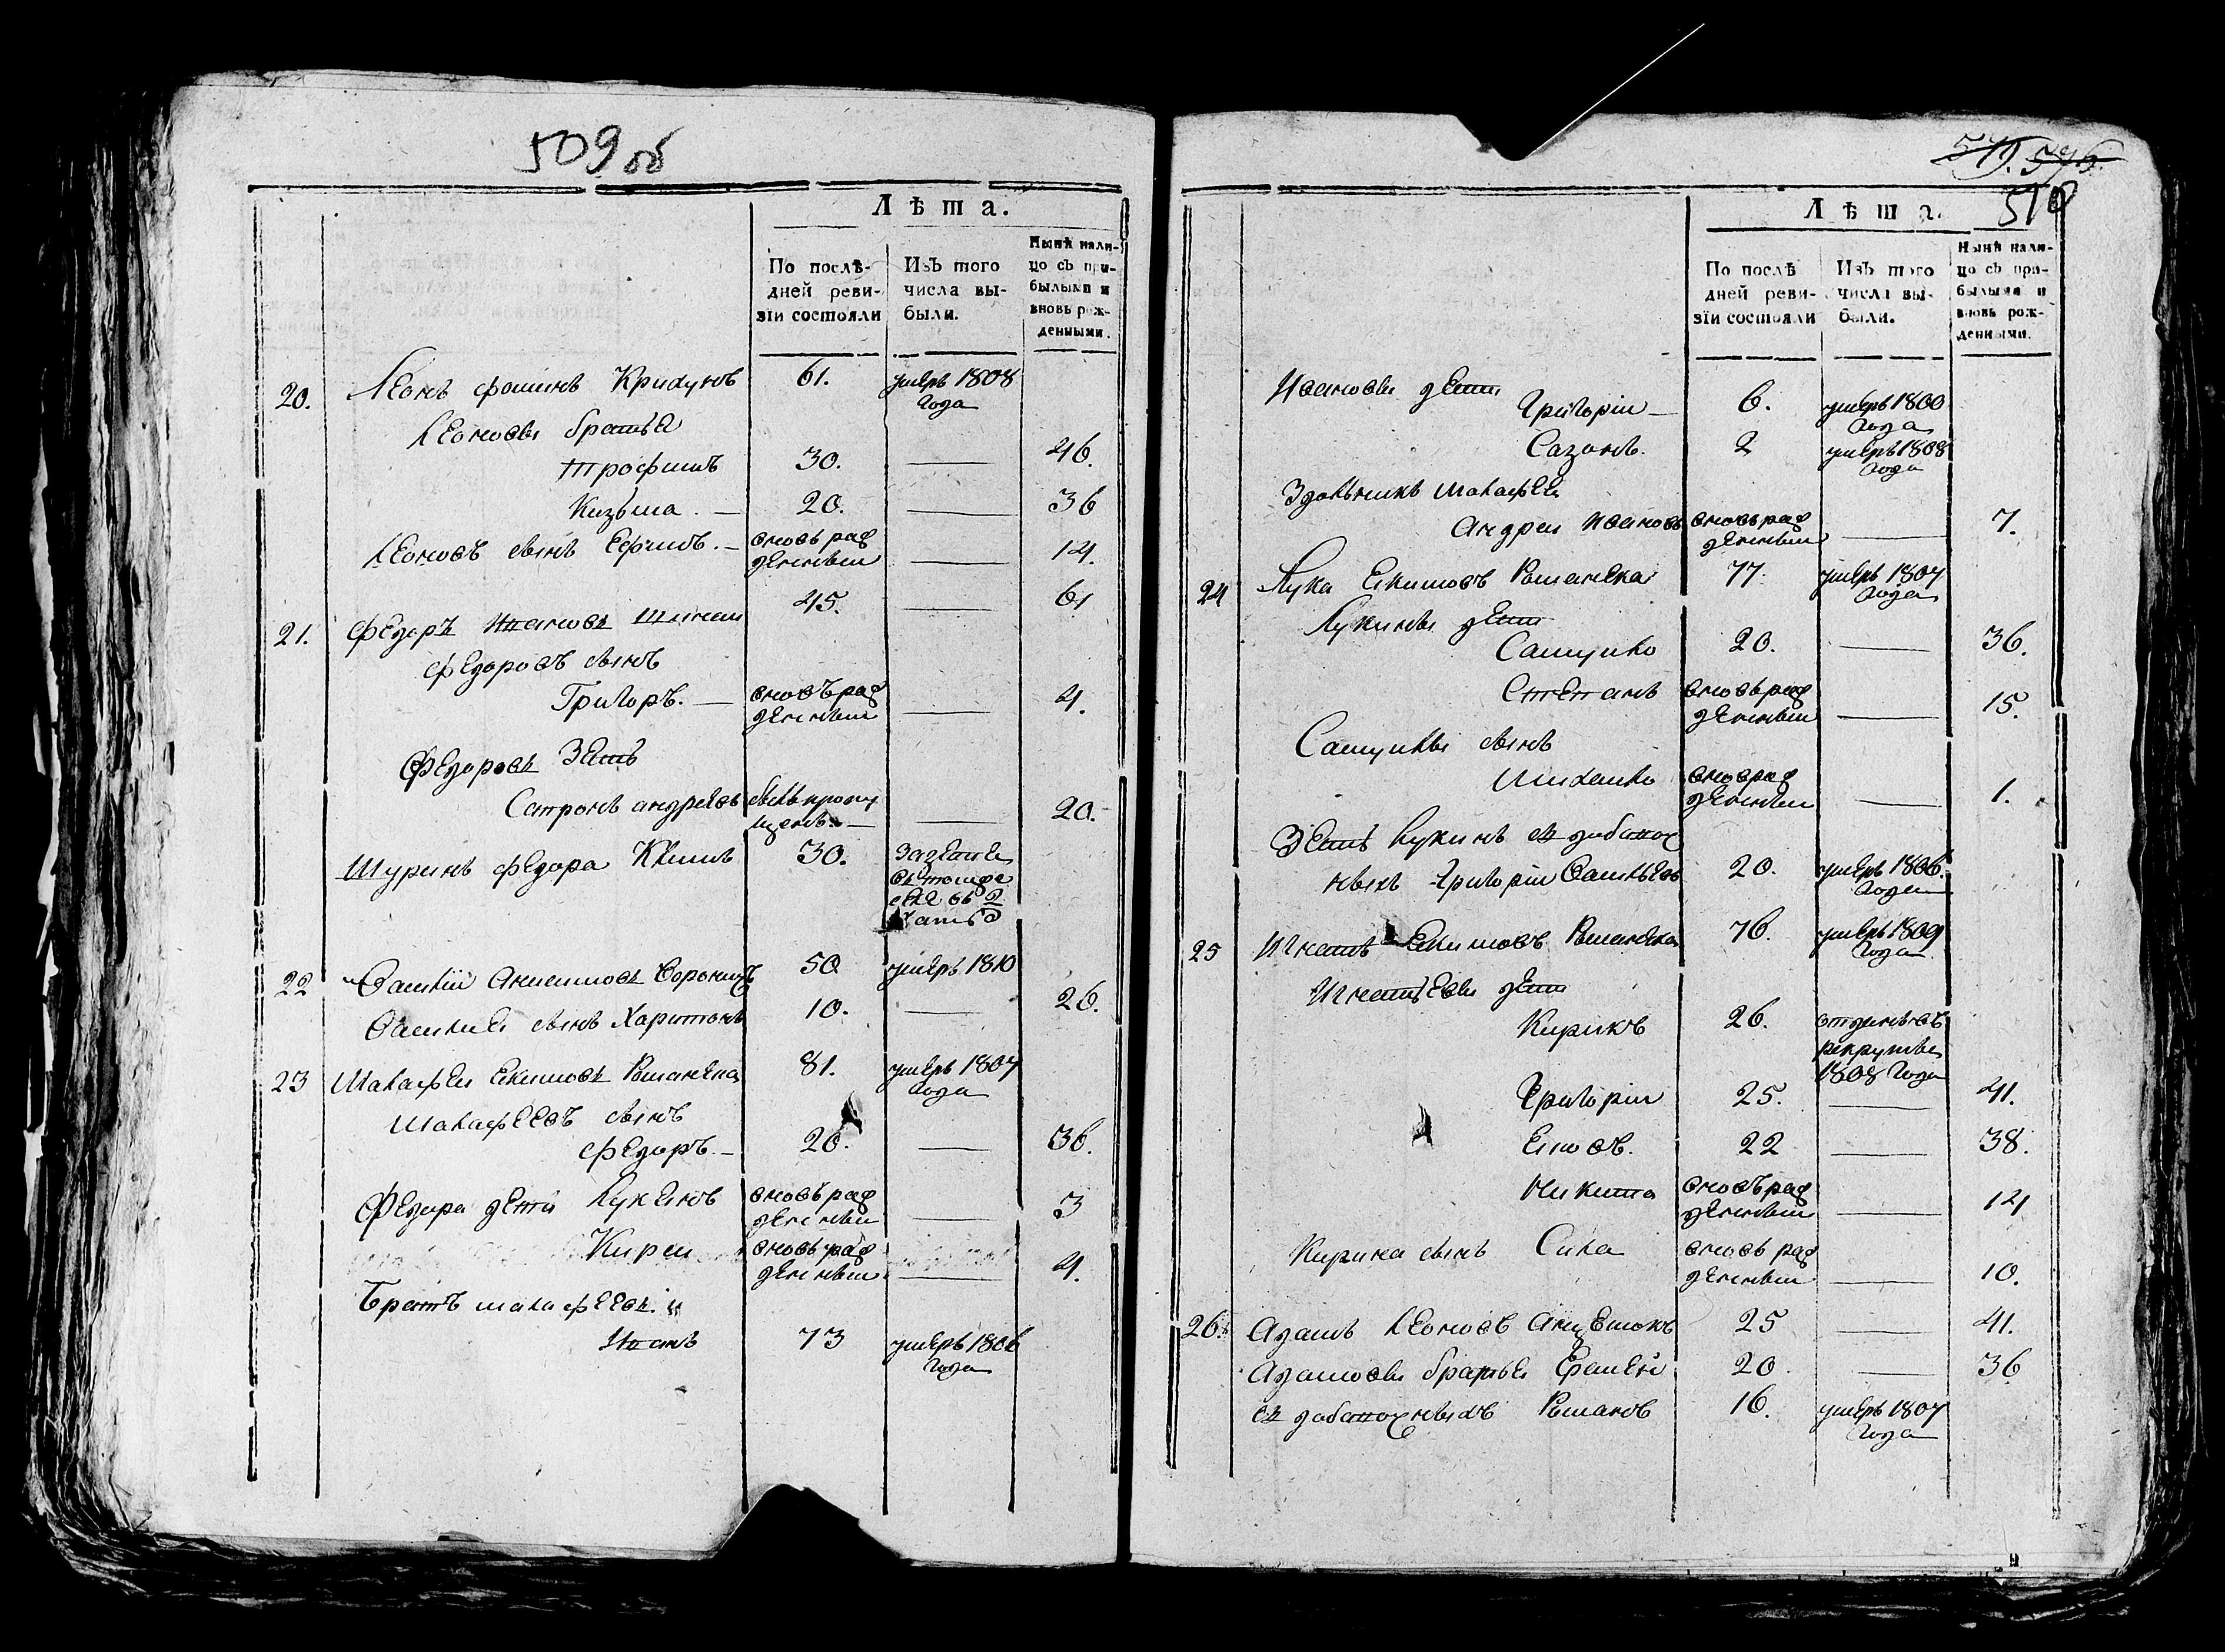 509 об
Лѣта.
По послѣ-
дней реви-
зіи состояли
Изъ того
числа вы-
были.
Нынѣ нали-
цо съ при-
былыми и
вновь рож-
денными.
20. Леонъ фоминъ Крикуновъ 61. умеръ 1808
года
Леоновы братья
Трофимъ 30. — 46.
Кузьма. — 20. — 36
Леоновъ сынъ Ефимъ. — вновь рож
денныи — 14.
21. Федоръ Ивановъ 45. — 61
Федоровъ сынъ
Григоръ. — вновь рож
денныи — 4.
Федоровъ Зять
андреевъ пропу
щенъ — — 20.
Шуринъ федора Климъ 30.
22 Василіи Анисимовъ 50 умеръ 1810
Василия сынъ Харитонъ 10. — 26.
23 Малафеи Екимовъ Романека 81. умеръ 1807
года
Малафеевъ сынъ
Федоръ. — 20. — 36.
Федора дети Лукеянъ вновь рож
денныи — 3
Киреи вновь рож
денныи — 4.
Братъ малафеевъ.
Иванъ 73 умеръ 1806
года
579. 576.
510
Лѣта.
По послѣ
дней реви-
зіи состояли
Изъ того
числа вы-
были.
Нынѣ нали-
цо съ при-
былыми и
вновь рож-
денными.
Ивановы дети
Григоріи — 6. умеръ 1800
года
Сазонъ. 2 умеръ 1808
года
Малафея
Андреи Ивановъ вновь рож
денныи — 7.
24 Лука Екимовъ Романека 77. умеръ 1807
года
Лукины дети
Самуило 20. — 36.
Степанъ вновь рож
денныи — 15.
Самуилы сынъ
Михаило вновь рож
денныи — 1.
Зять Лукинъ из добавоч
ныхъ Григоріи Васильевъ 20. умеръ 1806.
года
25 Игнатъ Екимовъ Романека 76. умеръ 1809
года
Игнатьевы дети
Кирикъ 26. отданъ въ
рекруты
1808 года
Григоріи 25. — 41.
Яковъ. 22 — 38.
Никита вновь рож
денныи — 14
Кирика сынъ Сила вновь рож
денныи — 10.
26. Адамъ Леоновъ 25 — 41.
Адамовы братья Еремеи 20. — 36
из добавочныхъ Романъ 16. умеръ 1807
года